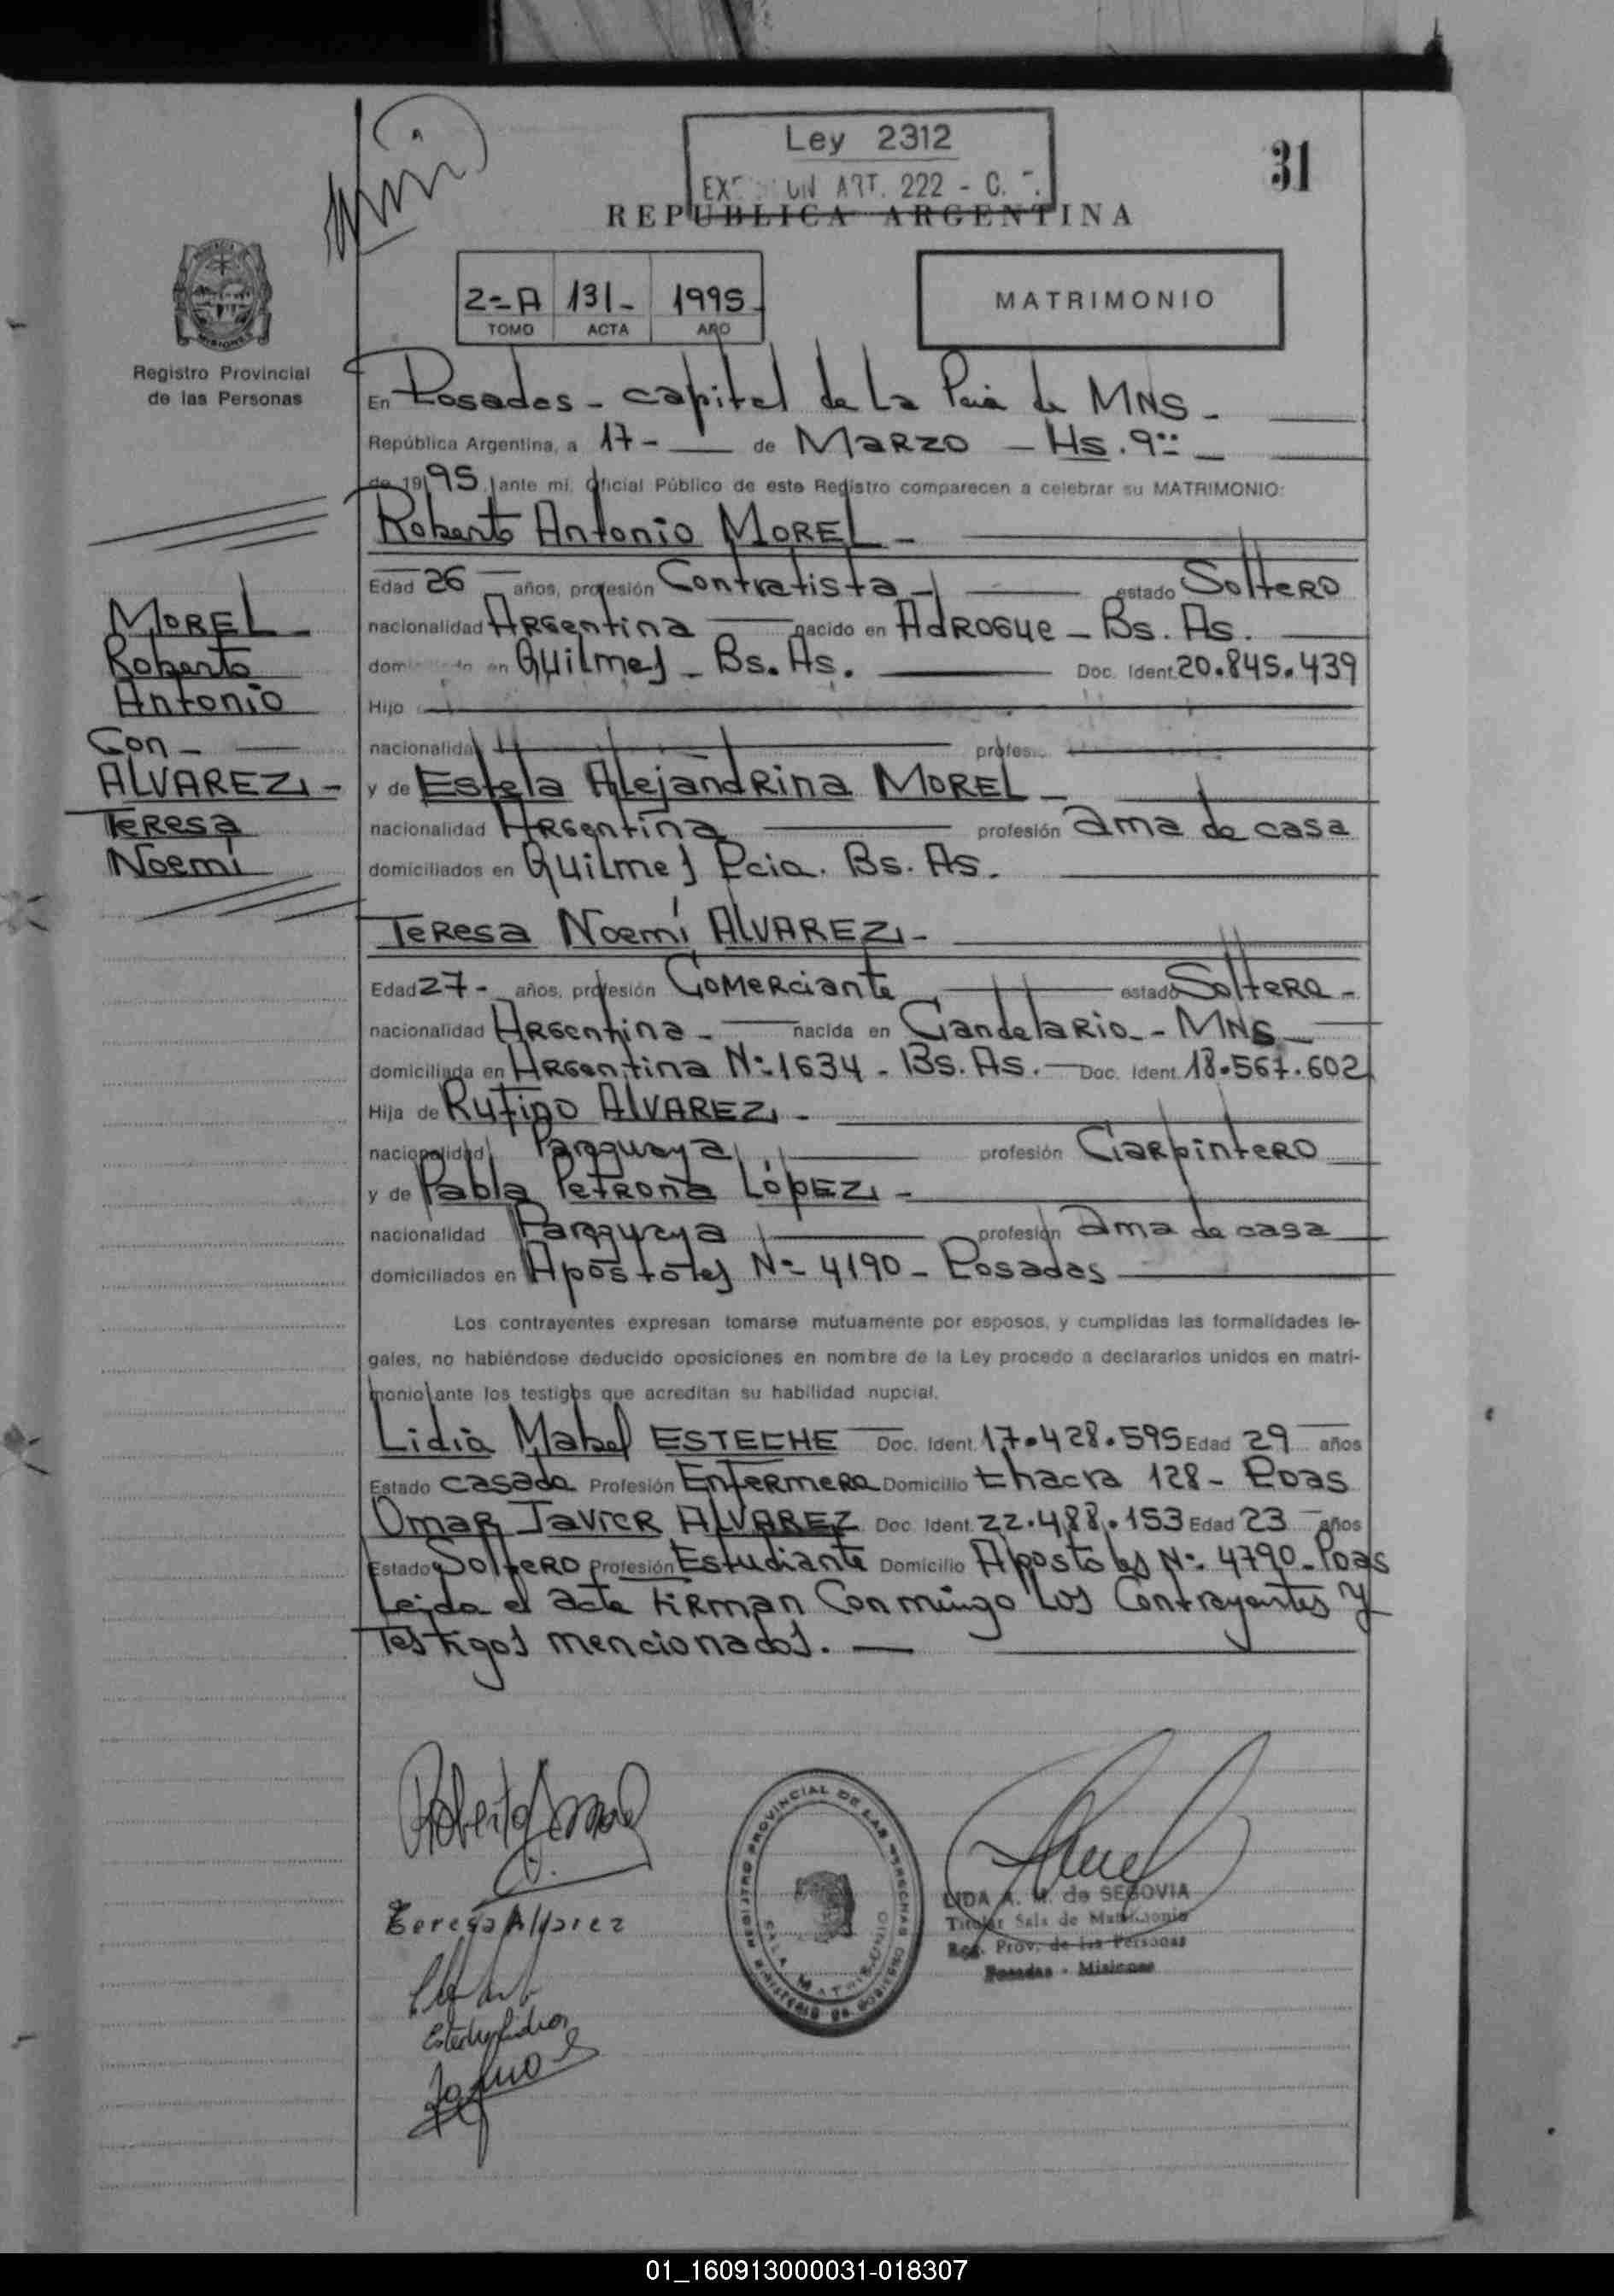 Ley 2312
ART. 222 - C.
31
REPUBLICA ARGENTINA
2=A 131- 1995-
TOMO ACTA AÑO
MATRIMONIO
Registro Provincial
de las Personas
En Posadas - capital de La Pcia de MNS -
República Argentina, a 17- de MARZO - Hs. 9
de 1995 ante mí, Oficial Público de este Registro comparecen a celebrar su MATRIMONIO:
Roberto Antonio MOREL -
Edad 26 años, profesión Contratista - estado Soltero
nacionalidad Argentina nacido en Adrogue - Bs. As.
en Quilmes - Bs. As. Doc. Ident. 20.845.439
Hijo
nacionalidad
y de Estela Alejandrina MOREL -
nacionalidad Argentina profesión ama de casa
domiciliados en Quilmes Pcia. Bs. As.
MOREL -
Roberto
Antonio
Con -
ALVAREZ -
Teresa
Noemí
Teresa Noemí ALVAREZ -
Edad 27 - años, profesión Comerciante estado Soltera -
nacionalidad Argentina - nacida en Candelaria - MNS
domiciliada en Argentina Nº 1634 - Bs. As. - Doc. Ident. 18.567.602
Hija de Rufino ALVAREZ -
nacionalidad Paraguaya profesión Carpintero
y de Pabla Petrona LópEZ -
nacionalidad Paraguaya profesión ama de casa
domiciliados en Apóstoles Nº 4190 - Posadas
Los contrayentes expresan tomarse mutuamente por esposos, y cumplidas las formalidades le-
gales, no habiéndose deducido oposiciones en nombre de la Ley procedo a declararlos unidos en matri-
monio ante los testigos que acreditan su habilidad nupcial.
Lidia Mabel ESTECHE Doc. Ident. 17.428.595 Edad 29 años
Estado casada Profesión Enfermera Domicilio Chacra 128 - Poas
Omar Javier ALVAREZ Doc. Ident. 22.488.153 Edad 23 años
Estado Soltero Profesión Estudiante Domicilio Apostoles Nº 4790 - Poas
Leida el acta firman Conmingo Los Contrayentes y
Testigos mencionados. -
Teresa Alvarez
REGISTRO PROVINCIAL DE LAS PERSONAS
MINISTERIO DE GOBIERNO
SALA MATRIMONIO
LIDA A. M. de SEGOVIA
Titular Sala de Matrimonio
Reg. Prov. de las Personas
Posadas - Misiones
01_160913000031-018307